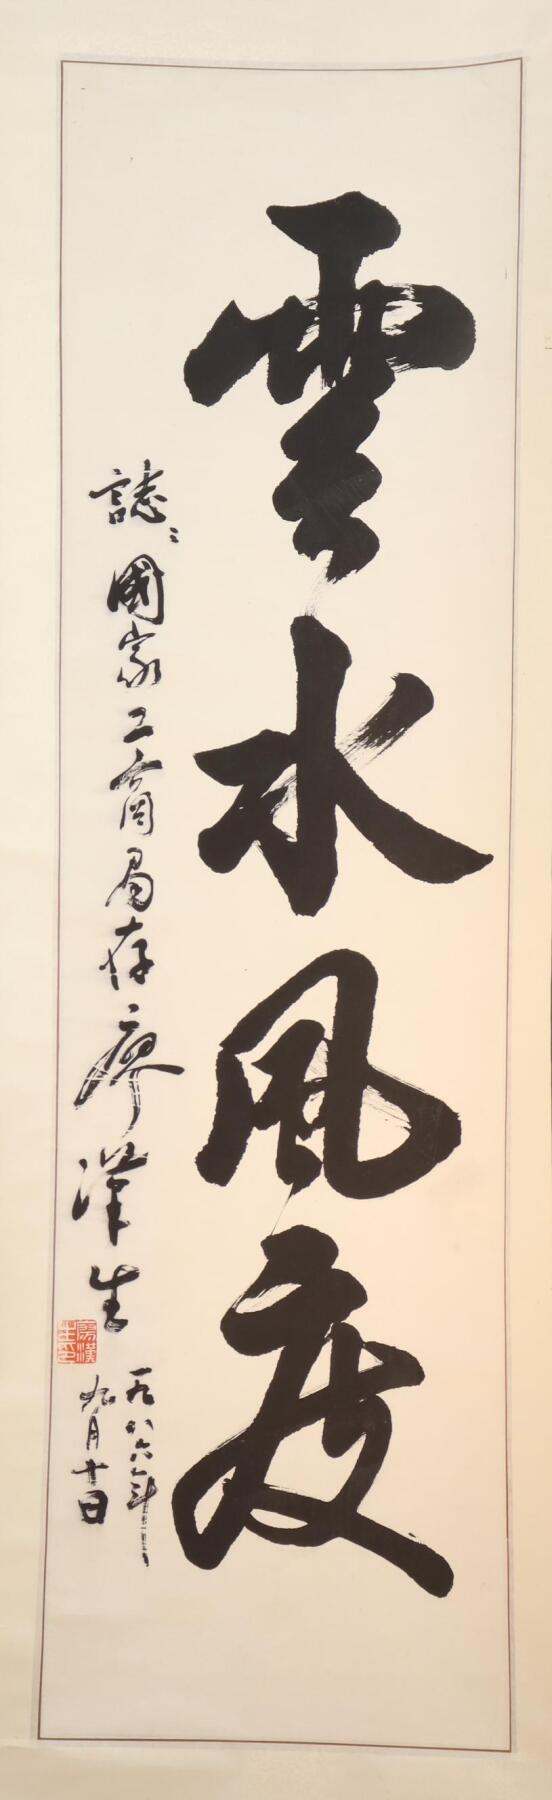 雲水風度
誌：國家工商局存廖漢生
一九八六年
九月十日
廖漢生印